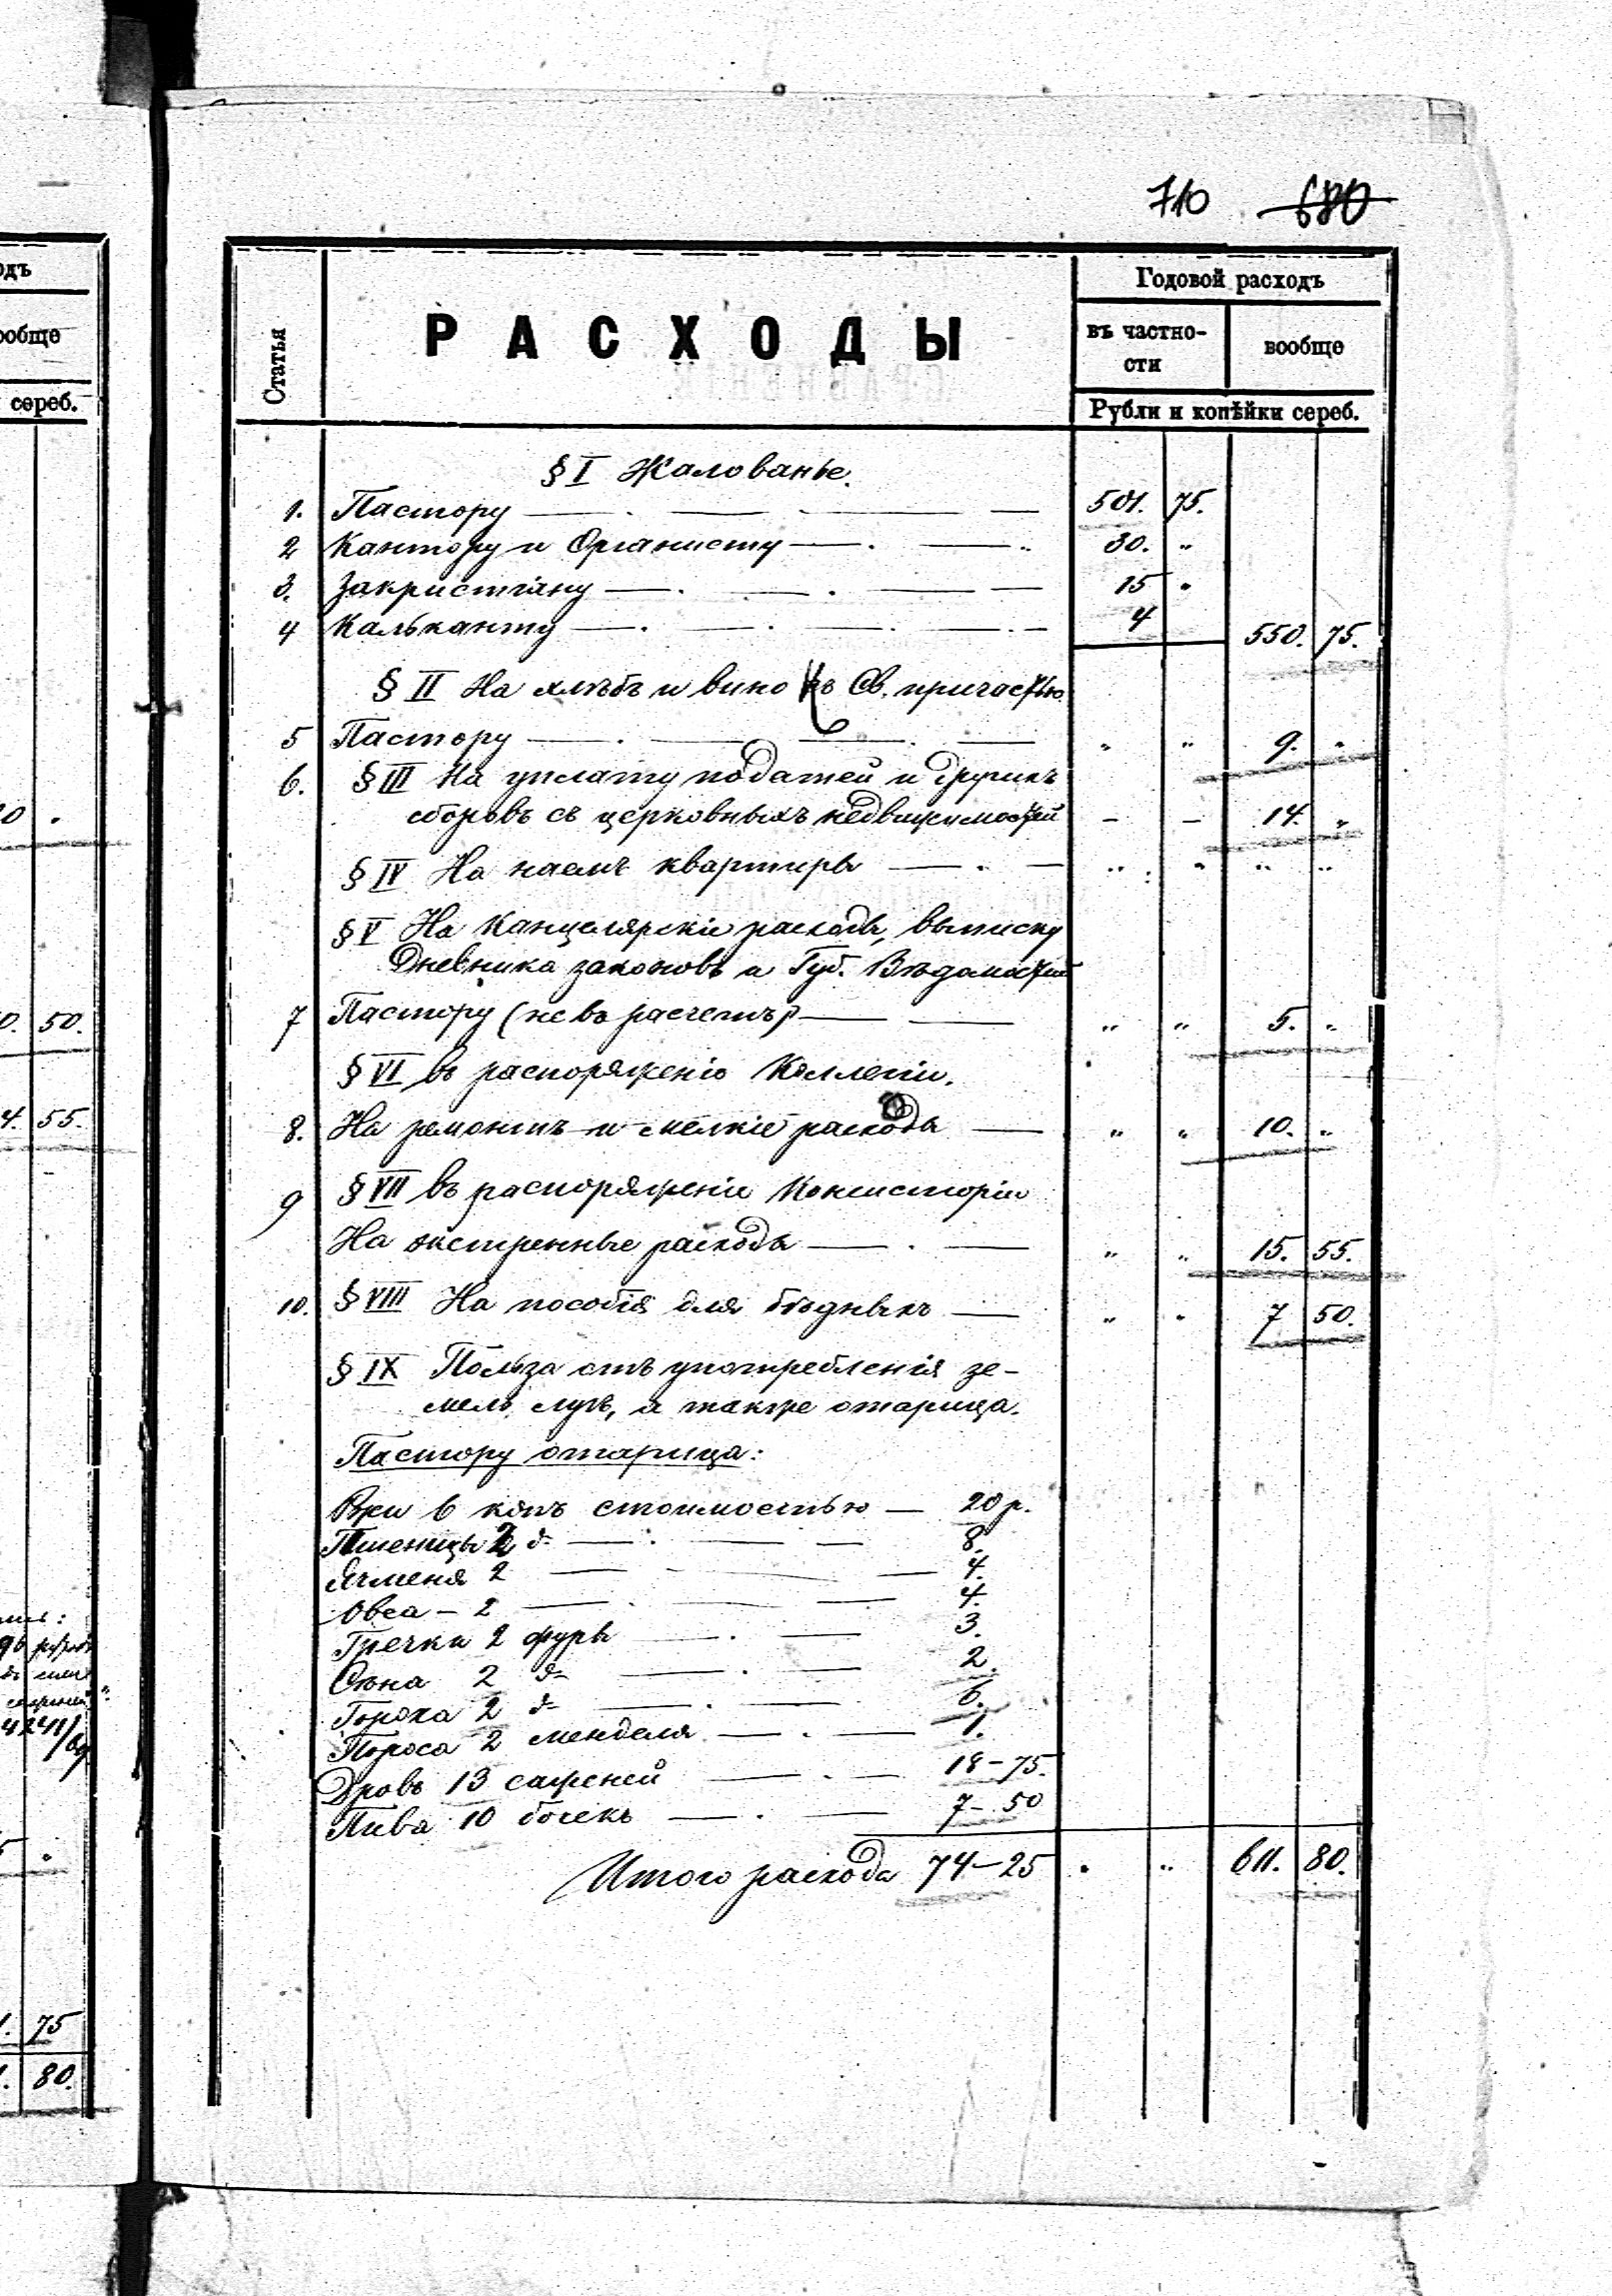 710 680
одъ
ообще
сереб.
0 .
0. 50.
4. 55.
75
80.
Статья
РАСХОДЫ
Годовой расходъ
въ частно-
сти
вообще
Рубли и копѣйки сереб.
§ I Жалованье.
1. Пастору — . — . — — 501. 75.
2 Кантору и Органисту — . — .. 30. "
3. Закристіяну — . — . — — 15 "
4 Кальканту — . — . — . — 4 550. 75.
§ II На хлѣбъ и вино къ Св. причастью
5 Пастору — . — — . — " " 9. "
6. § III На уплату податей и другихъ
сборовъ съ церковныхъ недвижимостей — — 14. "
§ IV На наемъ квартиры — . — " " " "
§ V На Канцелярскіе расходы, выписку
Дневника законовъ и Губ. Вѣдомостей
7 Пастору (не въ расчетъ) — — " " 5. "
§ VI въ распоряженіи Коллегіи.
8. На ремонтъ и мелкіе расходы — " " 10. "
9 § VII въ распоряженіи Консисторіи
На экстренные расходы — . — " " 15. 55.
10. § VIII На пособія для бѣдныхъ — " " 7 50.
§ IX Польза отъ употребленія зе-
мель, лугъ, а также отарица.
Пастору отарица:
Ржи 6 копъ стоимостью — 20 р.
Пшеницы 2 d — . — — 8.
Ячменя 2 — — . — — 4.
Овса – 2 — . — — 4.
Гречки 2 фуры — . — 3.
Сѣна 2 d — . — 2.
Гороха 2 d — . — 6.
Пороса 2 менделя — . — 1.
Дровъ 13 саженей — . — 18–75.
Пива 10 бочекъ — . — 7–50
Итого расхода 74–25 . " 611. 80.